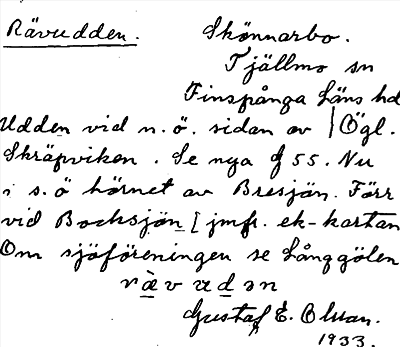 Rävudden. Skönnarbo.
Tjällmo sn
Finspånga Läns hd
Udden vid n.ö. sidan av | Ögl.
Skräpviken. Se nya G 55. Nu
i s.ö hörnet av Bresjön. Förr
vid Bocksjön [jmfr. ek-kartan
Om sjöföreningen se Långgölen
rävudən
Gustaf E. Olsson.
1933.